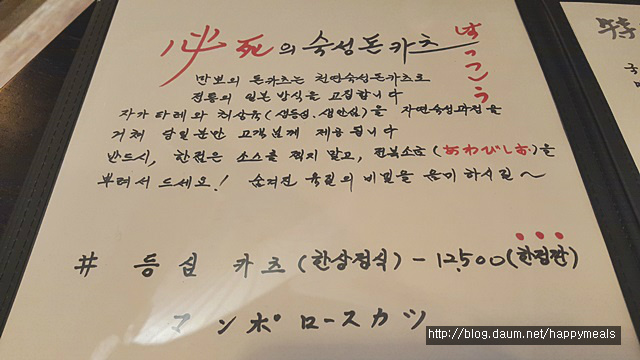 必死의 숙성돈카츠
けっこう
만보의 돈카츠는 천연숙성돈카츠로
전통의 일본 방식을 고집합니다
자가타레와 최상육(생등심, 생안심)을 자연숙성과정을
거쳐 당일분만 고객분께 제공됩니다
반드시, 한점은 소스를 찍지 말고, 전복소금(あわびしお)을
뿌려서 드세요! 숨겨진 육질의 비밀을 음미하시길~
# 등심 카츠(한상정식) - 12,500(한정판)
マンポ ロースカツ
特
http://blog.daum.net/happymeals